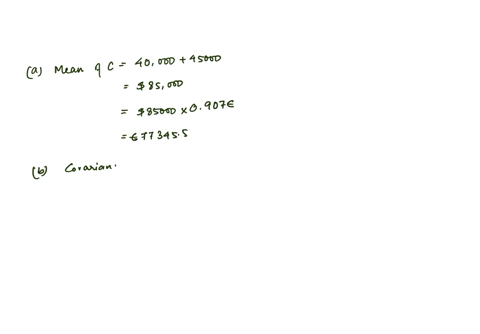 (a) Mean of C = 40,000 + 45000
= $85,000
= $85000 × 0.907€
= €77345.5
(b) Covarian.